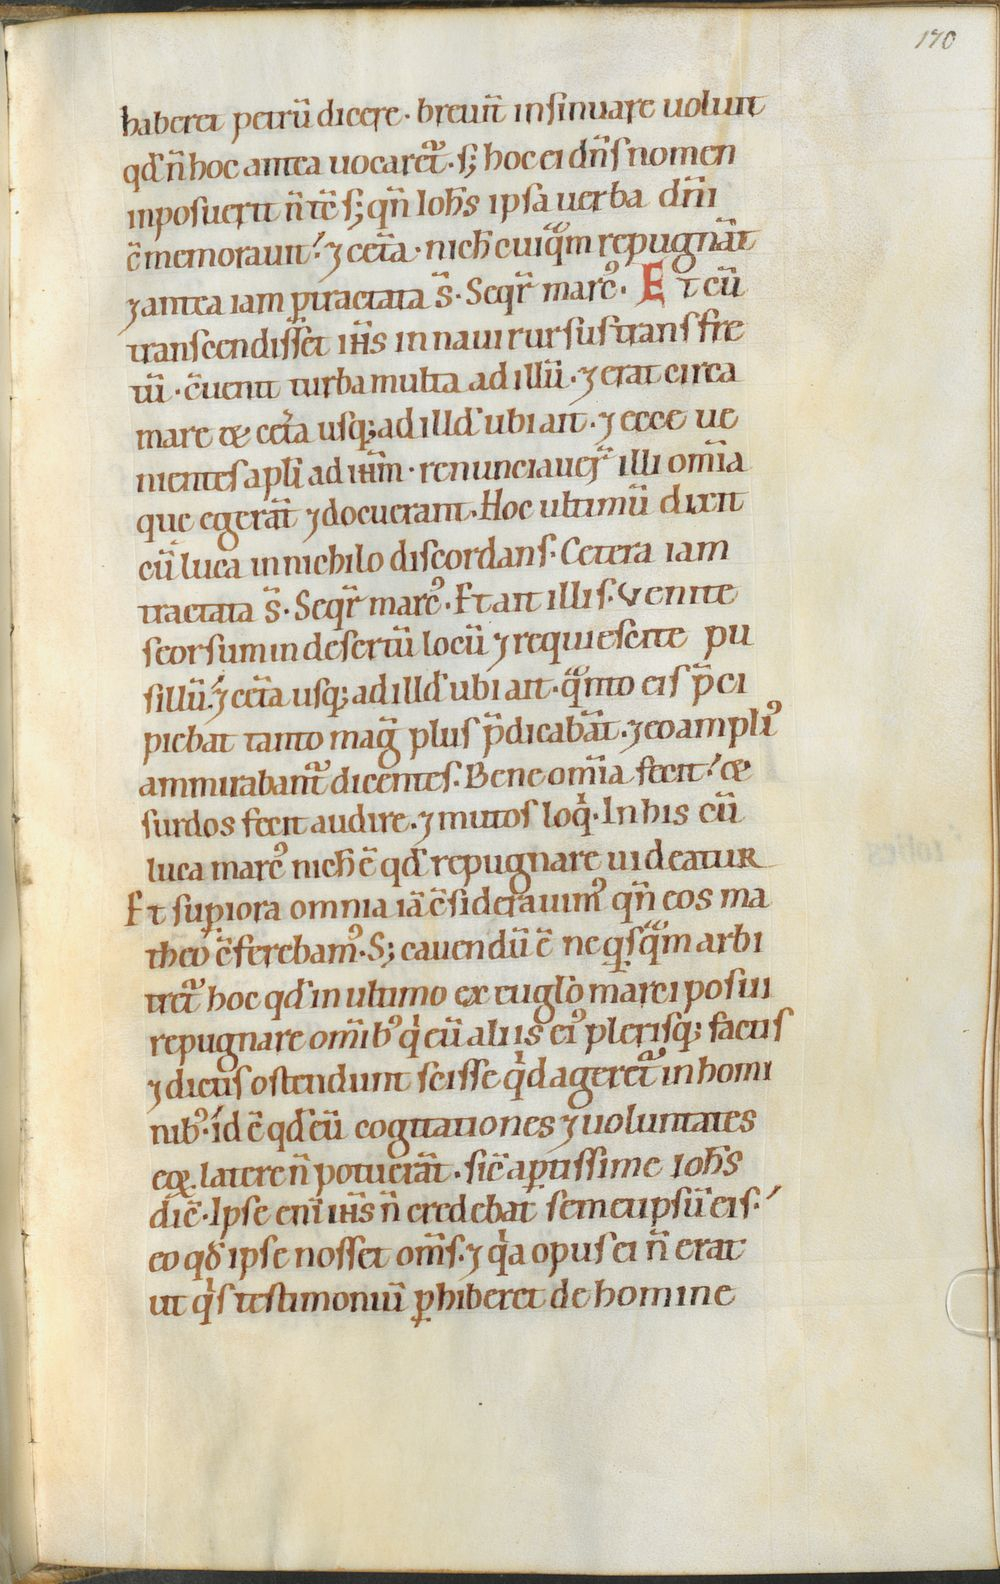 170
haberet petrū dicere. breuit̄ insinuare uoluit
qd̄ n̄ hoc antea uocaret᷑. s; hoc ei dn̄s nomen
inposuerit n̄ tc̄ s; qn̄ Ioh̄s ipsa uerba dn̄i
c̄memorauit! ⁊ cet̄a. nich̄ cuiqͦm repugnāt
⁊ antea iam ꝑtractata s̄. Seqr̄ marcꝰ. Et cū
transcendisset ih̄s in naui rursus trans fre
tū. c̄uenit turba multa ad illū. ⁊ erat circa
mare & cet̄a usq; ad illd̄ ubi ait. ⁊ ecce ue
nientes apl̄i ad ih̄m. renunciauer̄ illi om̄ia
que egerāt ⁊ docuerant. Hoc ultimū dixit
cū luca in nichilo discordans. Cetera iam
tractata s̄. Seqr̄ marcꝰ. Et ait illis. Venite
seorsum in desertū locū ⁊ requiescite pu
sillū! ⁊ cet̄a usq; ad illd̄ ubi ait. qͦnto eis p̄ci
piebat tanto maḡ plus p̄dicabāt. ⁊ eo ampliꝰ
ammirabant᷑ dicentes. Bene om̄ia fecit! &
surdos fecit audire. ⁊ mutos loqͥ. In his cū
luca marcꝰ nich̄ ē qd̄ repugnare uideatur
Et supiora omnia iā c̄siderauimꝰ qn̄ eos ma
theo c̄ferebamꝰ. S; cauendū ē ne qͥsqͦm arbi
tret᷑ hoc qd̄ in ultimo ex euglo marci posui
repugnare om̄ibꝰ qͥ cū aliis eiꝰ plerisq; factis
⁊ dictis ostendunt scisse qͥd ageret᷑ in homi
nibꝰ. id ē qd̄ eū cogitationes ⁊ uoluntates
eoꝝ. latere n̄ potuerāt. sic̄ aptissime Ioh̄s
dic̄. Ipse eni ih̄s n̄ credebat semetipsū eis!
eo qd̄ ipse nosset om̄s. ⁊ qͥa opus ei n̄ erat
ut qͥs testimoniū ꝑhiberet de homine